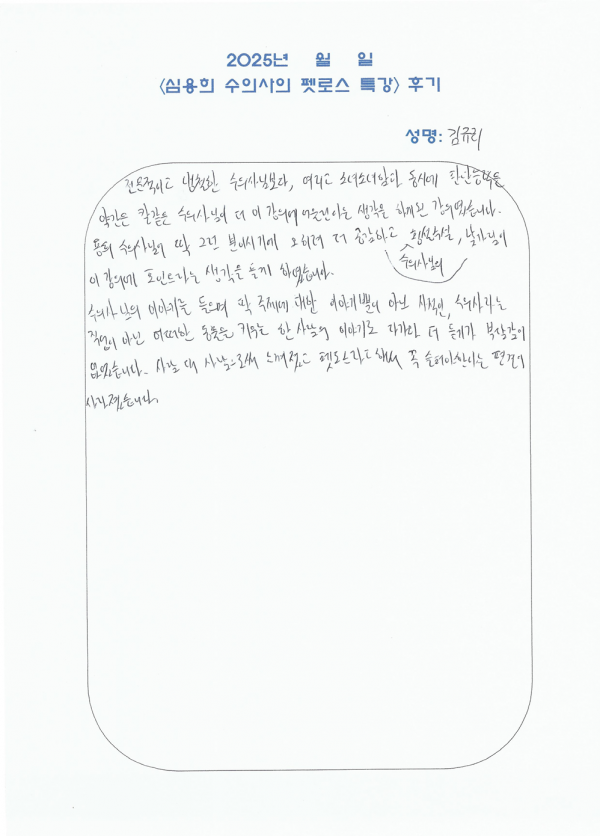 2025년 월 일
<심용희 수의사의 펫로스 특강> 후기
성명: 김규리
전문적이고 냉철한 수의사님보다, 여리고 소녀소녀하다 동시에 단단함
약간은 칼같은 수의사님이 더 이 강의에 어울린다는 생각을 하게된 강의였습니다.
용희 수의사님이 딱 그런 분위기에 오히려 더 공감하고 횡설수설, 날가님이
수의사님의
이 강의에 포인트라는 생각을 들게 하였습니다.
수의사님의 이야기를 들으며 딱 주제에 대한 이야기뿐이 아닌 시적인, 수의사라는
직업이 아닌 어떠한 동물을 키우는 한 사람의 이야기로 다가와 더 듣기가 부담감이
없었습니다. 사람 대 사람으로써 느껴졌고 펫로스라고해서 꼭 슬퍼야한다는 편견이
사라졌습니다.